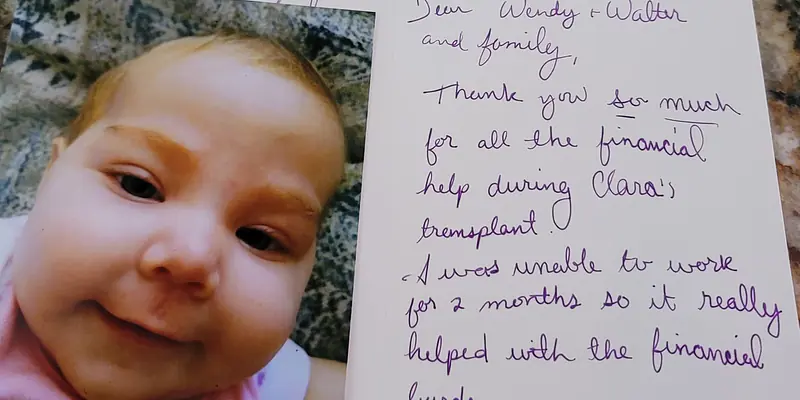 Dear Wendy + Walter
and family,
Thank you so much
for all the financial
help during Clara's
transplant.
I was unable to work
for 2 months so it really
helped with the financial